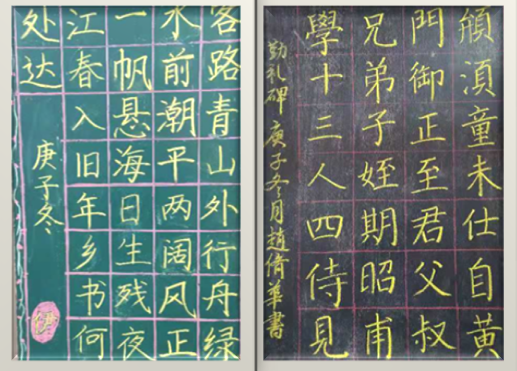 客路青山外行舟绿
水前潮平两阔风正
一帆悬海日生残夜
江春入旧年乡书何
处达
庚子冬
湏童未仕自黄
門御正至君父叔
兄弟子姪期昭甫
學十三人四侍見
勤礼碑 庚子冬月趙倩華書